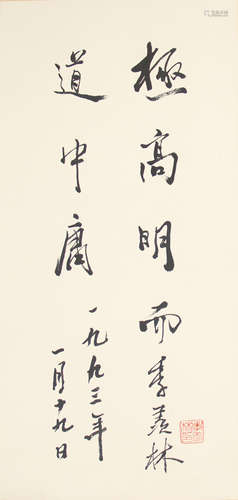 極高明而
道中庸
季羨林
一九九三年
一月十九日